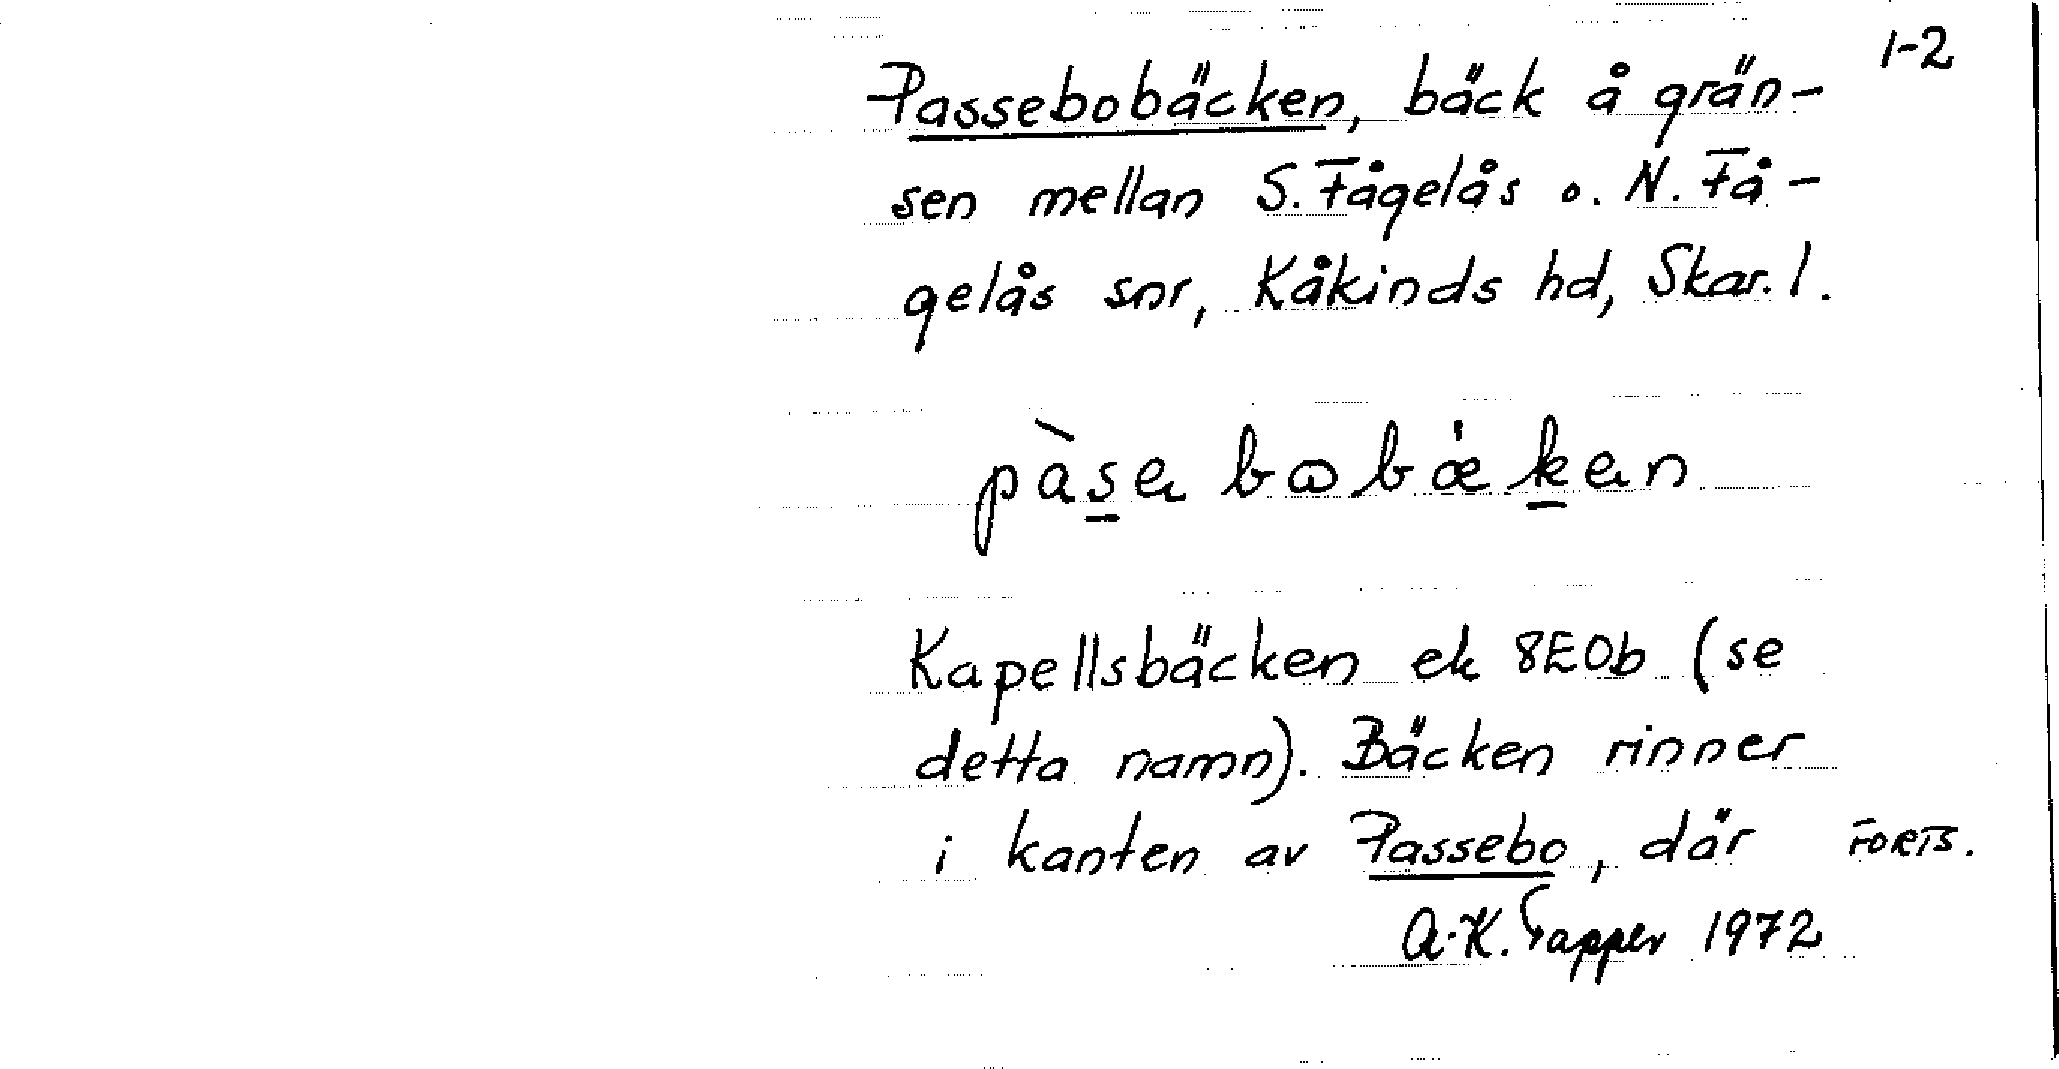 1-2
Passebobäcken, bäck å grän-
sen mellan S. Fågelås o. N. Få-
gelås snr, Kåkinds hd, Skar. l.
pàsa bɷbǽkan
Kapellsbäcken ek 8E0b (se
detta namn). Bäcken rinner
i kanten av Passebo, där
FORTS.
A-K. Tapper 1972